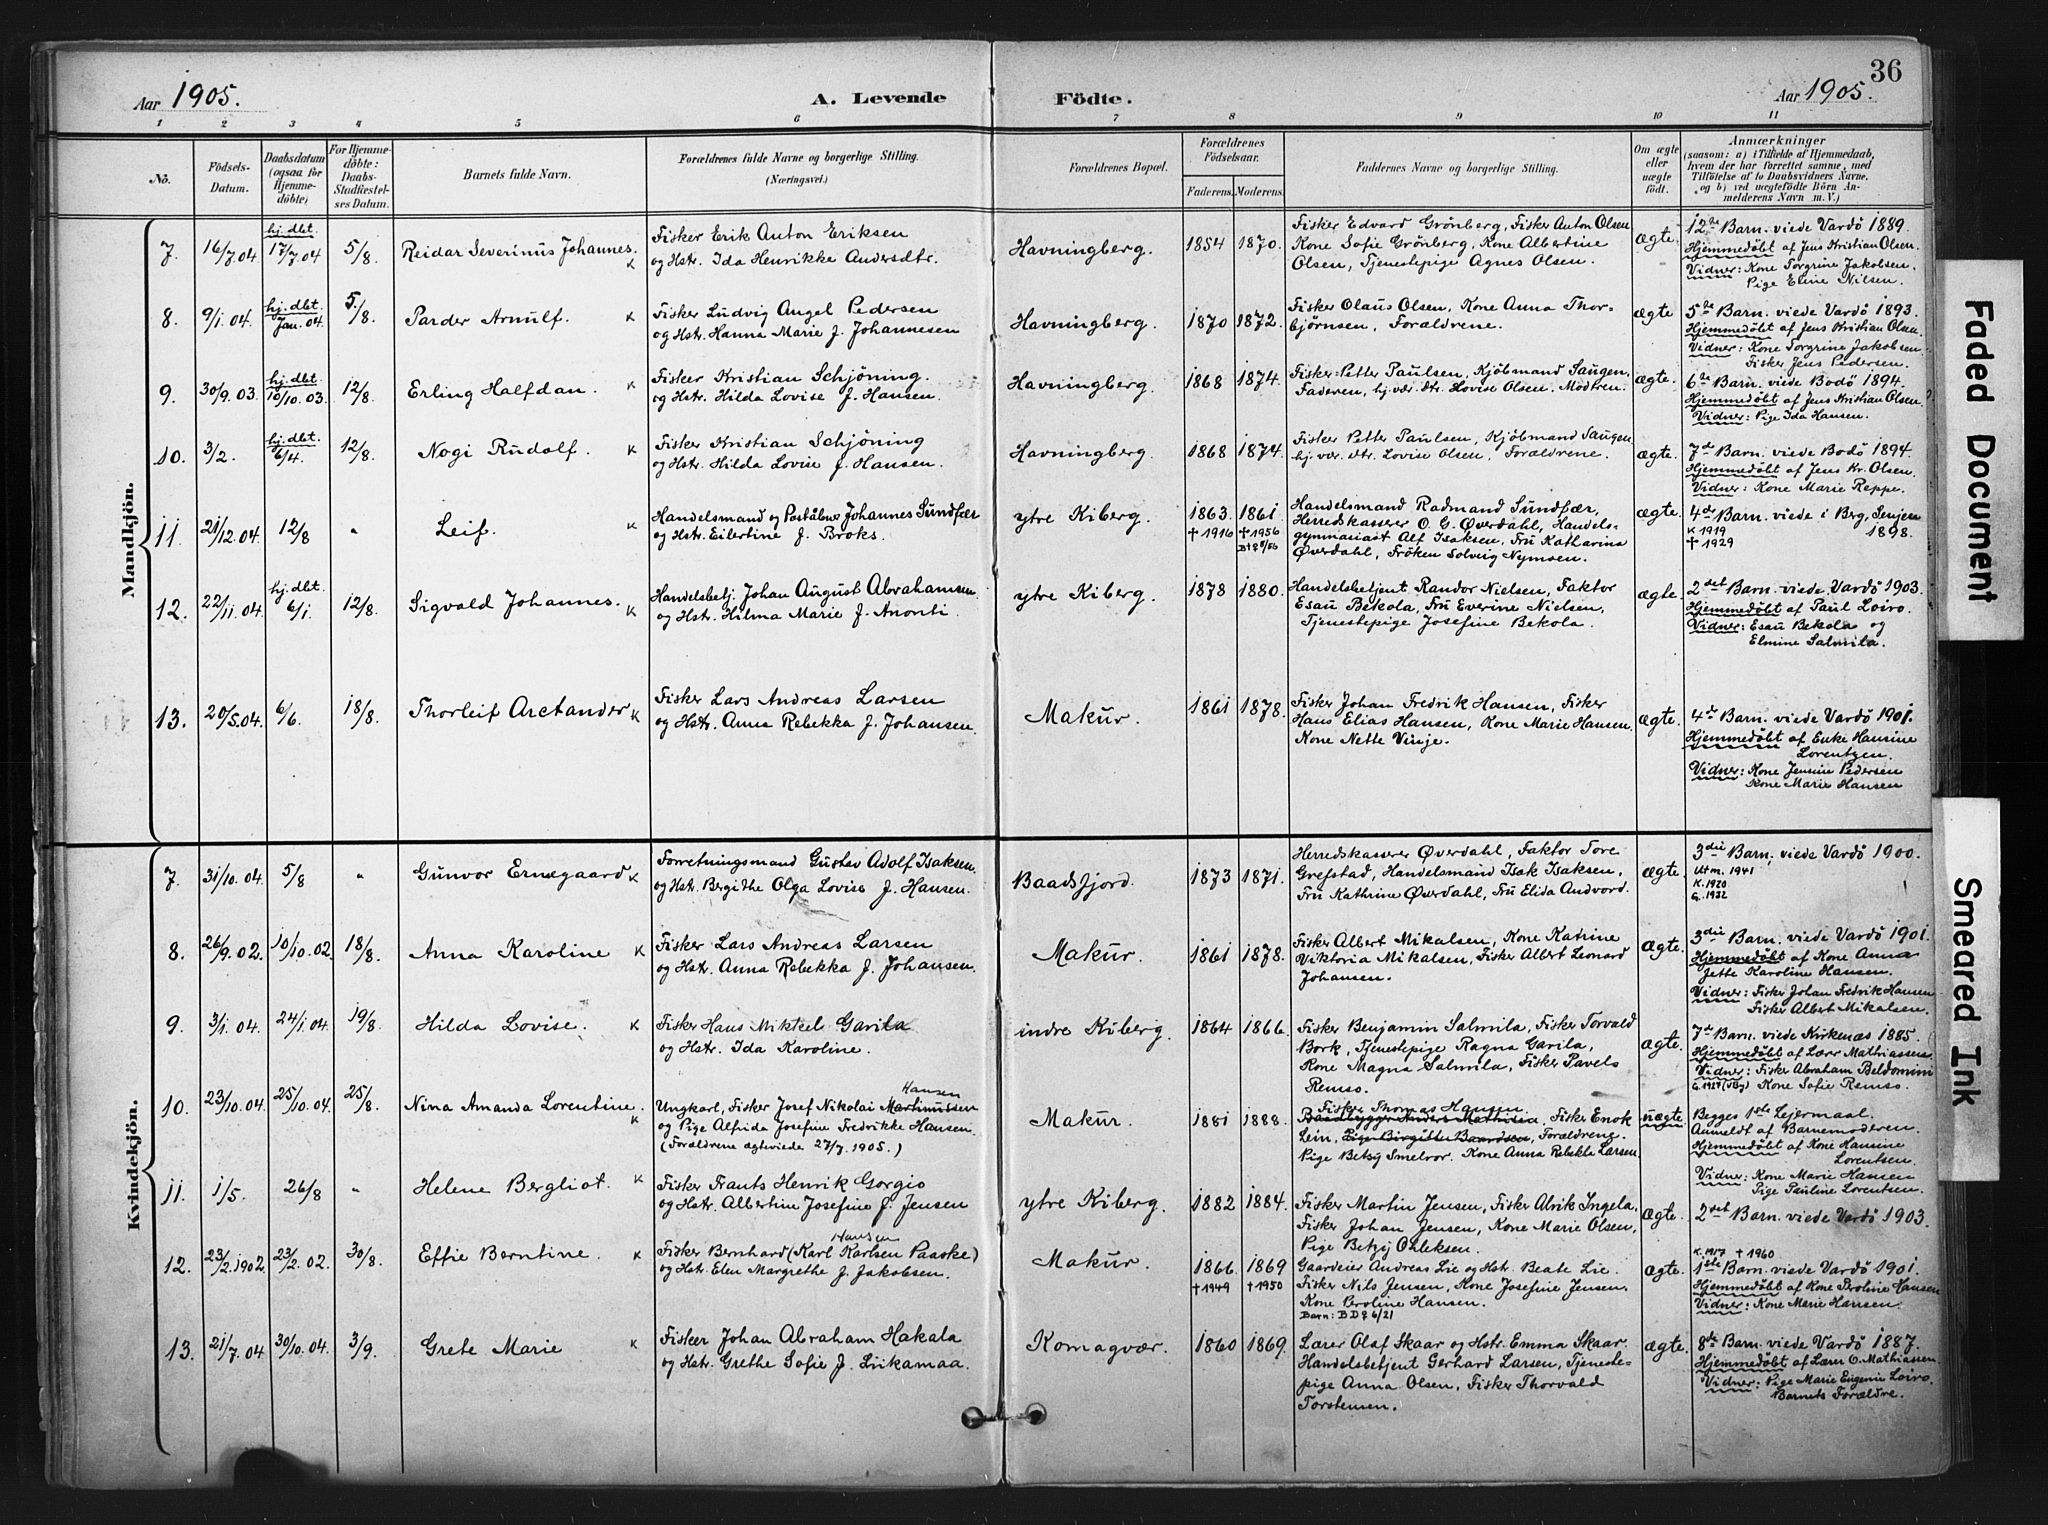 36
Aar 1905.
A. Levende Födte.
Aar 1905.
1 2 3 4 5 6 7 8 9 10 11
No.
Födsels-
Datum.
Daabsdatum
(ogsaa for
Hjemme-
döbte)
For Hjemme-
döbte:
Daabs-
Stadfæstel-
ses Datum.
Barnets fulde Navn.
Forældrenes fulde Navne og borgerlige Stilling.
(Næringsvei.)
Forældrenes Bopæl.
Forældrenes
Födselsaar.
Faderens. Moderens.
Faddernes Navne og borgerlige Stilling.
Om ægte
eller
uægte
födt.
Anmærkninger
(saasom: a) i Tilfælde af Hjemmedaab,
hvem der har forrettet samme, med
Tilföielse af to Daabsvidners Navne,
og b) ved uægtefödte Börn An-
melderens Navn m. V.)
Mandkjön.
7. 16/7.04 hj.dbt. 17/7.04 5/8 Reidar Severinus Johannes. K
Fisker Erik Anton Eriksen
og Hstr. Ida Henrikke Andersdtr.
Havningberg. 1854 1870.
Fisker Edvard Grönberg, Fisker Anton Olsen
Kone Sofie Grönberg, Kone Albertine
Olsen, Tjenestepige Agnes Olsen.
ægte.
12te Barn. viede Vardö 1889.
Hjemmedöbt af Jens Kristian Olsen.
Vidner: Kone Torgrine Jakobsen.
Pige Eline Nilsen.
8. 9/1.04 hj.dbt. Jan.04. 5/8. Parder Arnulf. K
Fisker Ludvig Angel Pedersen
og Hstr. Hanna Marie J. Johannesen
Havningberg. 1870 1872.
Fisker Olaus Olsen, Kone Anna Thor-
björnsen, Forældrene.
ægte
5te Barn. viede Vardö 1893.
Hjemmedöbt af Jens Kristian Olsen
Vidner: Kone Torgrine Jakobsen
Fisker Jens Pedersen.
9. 30/9.03 hj.dbt. 10/10.03. 12/8 Erling Halfdan. K
Fisker Kristian Schjöning.
og Hstr. Hilda Lovise J. Hansen.
Havningberg. 1868 1874.
Fisker Petter Paulsen, Kjöbmand Saugen,
Faderen, hj.vær. dtr. Lovise Olsen. Modren.
ægte.
6te Barn. viede Bodö 1894.
Hjemmedöbt af Jens Kristian Olsen.
Vidner: Pige Ida Hansen.
10. 3/2. hj.dbt. 6/4. 12/8. Nogi Rudolf. K
Fisker Kristian Schjöning
og Hstr. Hilda Lovise J. Hansen.
Havningberg. 1868 1874.
Fisker Petter Paulsen, Kjöbmand Saugen
hj.vær. dtr. Lovise Olsen, Forældrene.
ægte.
7de Barn. viede Bodö 1894.
Hjemmedöbt af Jens Kr. Olsen.
Vidner: Kone Marie Reppe.
11. 21/12.04. 12/8 " Leif. K
Handelsmand og Poståbner Johannes Sundfær
og Hstr. Eilertine J. Broks.
ytre Kiberg. 1863. 1861
† 1916 † 1956
Fru Katharina
Handelsmand Radmand Sundfær,
Herredskasserer O. G. Överdahl, Handels-
gymnasiast Alf Isaksen, Fru Katharina
Överdahl, Fröken Solveig Nymoen.
ægte.
4de Barn. viede i Berg, Senjen
1898.
K 1919
† 1929
12. 22/11.04. hj.dbt. 6/1. 12/8. Sigvald Johannes. K
Handelsbetj. Johan August Abrahamsen.
og Hstr. Hilma Marie J. Anonti.
ytre Kiberg. 1878 1880.
Handelsbetjent Randor Nielsen, Faktor
Esau Bekola, Fru Everine Nielsen,
Tjenestepige Josefine Bekola.
ægte.
2det Barn. viede Vardö 1903.
Hjemmedöbt af Paul Loiro.
Vidner: Esau Bekola og
Elmine Salmila.
13. 20/5.04. 6/6. 18/8. Thorleif Arctander K
Fisker Lars Andreas Larsen
og Hstr. Anna Rebekka J. Johansen.
Makur. 1861 1878.
Fisker Johan Fredrik Hansen, Fisker
Hans Elias Hansen, Kone Marie Hansen.
Kone Nette Vinje.
ægte.
4de Barn. viede Vardö 1901.
Hjemmedöbt af Enke Hansine
Lorentzen.
Vidner: Kone Jensine Pedersen
Kone Marie Hansen
Kvindekjön.
7. 31/10.04. 5/8 " Gunvor Ernegaard K
Forretningsmand Gustav Adolf Isaksen.
og Hstr. Bergithe Olga Lovise J. Hansen.
Baadsfjord. 1873 1871.
Herredskasserer Överdahl, Faktor Tore
Grefstad, Handelsmand Isak Isaksen,
Fru Kathrine Överdahl, Fru Elida Andvord.
ægte.
3die Barn. viede Vardö 1900.
Utm. 1941
K. 1920
G. 1932
8. 26/9.02. 10/10.02. 18/8. Anna Karoline K
Fisker Lars Andreas Larsen
og Hstr. Anna Rebekka J. Johansen.
Makur. 1861 1878.
Fisker Albert Mikalsen, Kone Katrine
Viktoria Mikalsen, Fisker Albert Leonard
Johansen.
Ægte.
3die Barn. viede Vardö 1901.
Hjemmedöbt af Kone Anna
Jette Karoline Hansen.
Vidner: Fisker Johan Fredrik Hansen
Fisker Albert Mikalsen.
9. 3/1.04. 24/1.04. 19/8. Hilda Lovise. K
Fisker Hans Mikkel Garila
og Hstr. Ida Karoline.
indre Kiberg. 1864 1866.
Fisker Benjamin Salmila, Fisker Torvald
Bork, Tjenestepige Ragna Garila,
Kone Magna Salmila, Fisker Pavels
Remso.
ægte.
7de Barn. viede Kirkenæs 1885.
Hjemmedöbt af Lærer Mathiassen.
Vidner: Fisker Abraham Beldomini
Kone Sofie Remso.
10. 23/10.04. 25/10.04. 25/8. Nina Amanda Lorentine. K
Hansen
Ungkarl, Fisker Josef Nikolai Martinussen
og Pige Alfrida Josefine Fredrikke Hansen.
(Forældrene ægteviede 27/7.1905.)
Makur. 1881 1888.
Fisker Thomas Hansen
Fisker Enok
Lein, Pige Birgitte Baardsen, Forældrene.
Pige Betsy Smelror. Kone Anna Rebekka Larsen.
uægte
Begges 1ste Lejermaal.
Anmeldt af Barnemoderen.
Hjemmedöbt af Kone Hansine
Lorentsen.
Vidner: Kone Marie Hansen
Pige Pauline Lorentsen.
11. 1/5. 26/8 " Helene Bergliot. K
Fisker Frants Henrik Gorgio
og Hstr. Albertine Josefine J. Jensen
ytre Kiberg. 1882 1884.
Fisker Martin Jensen, Fisker Alrik Ingela,
Fisker Johan Jensen, Kone Marie Olsen,
Pige Betzy Ohleksen.
ægte.
2det Barn. viede Vardö 1903.
12. 23/2.1902. 23/2.02. 30/8. Effie Berntine. K
Hansen
Fisker Bernhard (Karl Karlsen Paaske)
og Hstr. Elen Margrethe J. Jakobsen.
Makur. 1866 1869
† 1949 † 1950
Gaardeier Andreas Lie og Hstr. Beate Lie.
Fisker Nils Jensen, Kone Josefine Jensen.
Kone Peroline Hansen.
ægte.
K. 1917 † 1960
1ste Barn. viede Vardö 1901.
Hjemmedöbt af Kone Peroline Hansen
Vidner: Kone Marie Hansen.
13. 21/7.04 30/10.04. 3/9. Grete Marie K
Fisker Johan Abraham Hakala
og Hstr. Grethe Sofie J. Liikamaa.
Komagvær. 1860 1869.
Lærer Olaf Skaar og Hstr. Emma Skaar.
Handelsbetjent Gerhard Larsen, Tjeneste-
pige Anna Olsen, Fisker Thorvald
Torstensen.
ægte.
8de Barn. viede Vardö 1887.
Hjemmedöbt af Lærer O. Mathiassen.
Vidner: Pige Marie Eugenie Loiro.
Barnets Forældre.
Faded Document
Smeared Ink